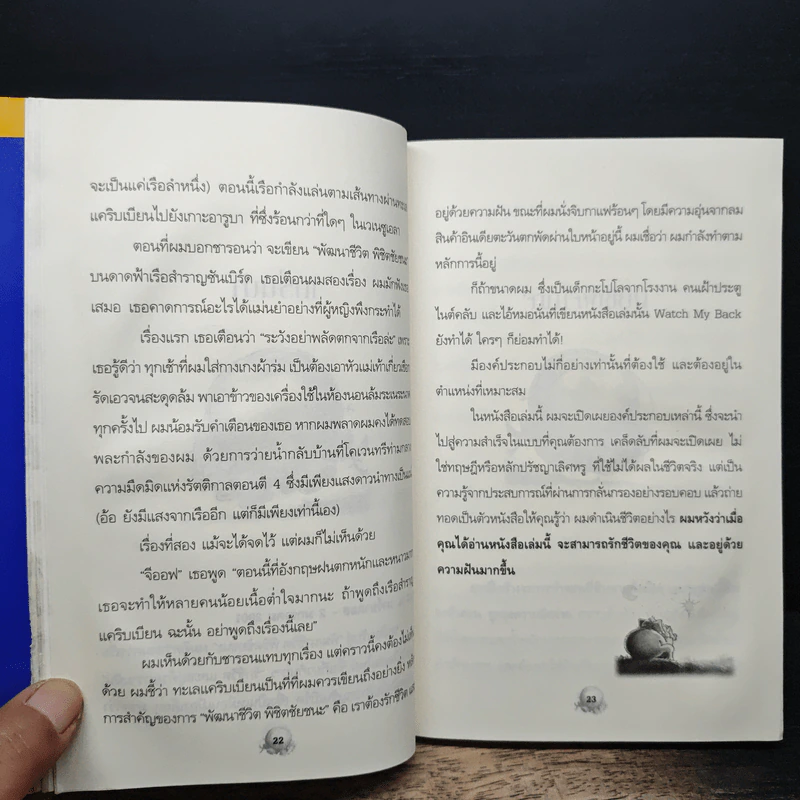 จะเป็นแค่เรือลำหนึ่ง) ตอนนี้เรือกำลังแล่นตามเส้นทางผ่าน
แคริบเบียนไปยังเกาะอารูบา ที่ซึ่งร้อนกว่าที่ใดๆ ในเวเนซูเอลา
ตอนที่ผมบอกชารอนว่า จะเขียน “พัฒนาชีวิต พิชิตชัยชนะ”
บนดาดฟ้าเรือสำราญซันเบิร์ด เธอเตือนผมสองเรื่อง ผมมักฟังเธอ
เสมอ เธอคาดการณ์อะไรได้แม่นยำอย่างที่ผู้หญิงพึงกระทำได้
เรื่องแรก เธอเตือนว่า “ระวังอย่าพลัดตกจากเรือล่ะ” เพราะ
เธอรู้ดีว่า ทุกเช้าที่ผมใส่กางเกงผ้าร่ม เป็นต้องเอาหัวแม่เท้าเกี่ยวเชือก
รัดเอวจนสะดุดล้ม พาเอาข้าวของเครื่องใช้ในห้องนอนล้มระเนระนาด
ทุกครั้งไป ผมน้อมรับคำเตือนของเธอ หากผมพลาดผมคงได้ทดสอบ
พละกำลังของผม ด้วยการว่ายน้ำกลับบ้านที่โคเวนทรีท่ามกลาง
ความมืดมิดแห่งรัตติกาลตอนตี 4 ซึ่งมีเพียงแสงดาวนำทางเป็น
(อ้อ ยังมีแสงจากเรืออีก แต่ก็มีเพียงเท่านี้เอง)
เรื่องที่สอง แม้จะได้จดไว้ แต่ผมก็ไม่เห็นด้วย
“จีออฟ” เธอพูด “ตอนนี้ที่อังกฤษฝนตกหนักและหนาวมาก
เธอจะทำให้หลายคนน้อยเนื้อต่ำใจมากนะ ถ้าพูดถึงเรือสำราญ
แคริบเบียน ฉะนั้น อย่าพูดถึงเรื่องนี้เลย”
ผมเห็นด้วยกับชารอนแทบทุกเรื่อง แต่คราวนี้คงต้องไม่เห็น
ด้วย ผมชี้ว่า ทะเลแคริบเบียนเป็นที่ที่ผมควรเขียนถึงอย่างยิ่ง
การสำคัญของการ “พัฒนาชีวิต พิชิตชัยชนะ” คือ เราต้องรักชีวิต
22
อยู่ด้วยความฝัน ขณะที่ผมนั่งจิบกาแฟร้อนๆ โดยมีความอุ่นจากลม
สินค้าอินเดียตะวันตกพัดผ่านใบหน้าอยู่นี้ ผมเชื่อว่า ผมกำลังทำตาม
หลักการนี้อยู่
ก็ถ้าขนาดผม ซึ่งเป็นเด็กกะโปโลจากโรงงาน คนเฝ้าประตู
ไนต์คลับ และไอ้หมอนั่นที่เขียนหนังสือเล่มนั้น Watch My Back
ยังทำได้ ใครๆ ก็ย่อมทำได้!
มีองค์ประกอบไม่กี่อย่างเท่านั้นที่ต้องใช้ และต้องอยู่ใน
ตำแหน่งที่เหมาะสม
ในหนังสือเล่มนี้ ผมจะเปิดเผยองค์ประกอบเหล่านี้ ซึ่งจะนำ
ไปสู่ความสำเร็จในแบบที่คุณต้องการ เคล็ดลับที่ผมจะเปิดเผย ไม่
ใช่ทฤษฎีหรือหลักปรัชญาเลิศหรู ที่ใช้ไม่ได้ผลในชีวิตจริง แต่เป็น
ความรู้จากประสบการณ์ที่ผ่านการกลั่นกรองอย่างรอบคอบ แล้วถ่าย
ทอดเป็นตัวหนังสือให้คุณรู้ว่า ผมดำเนินชีวิตอย่างไร ผมหวังว่าเมื่อ
คุณได้อ่านหนังสือเล่มนี้ จะสามารถรักชีวิตของคุณ และอยู่ด้วย
ความฝันมากขึ้น
23